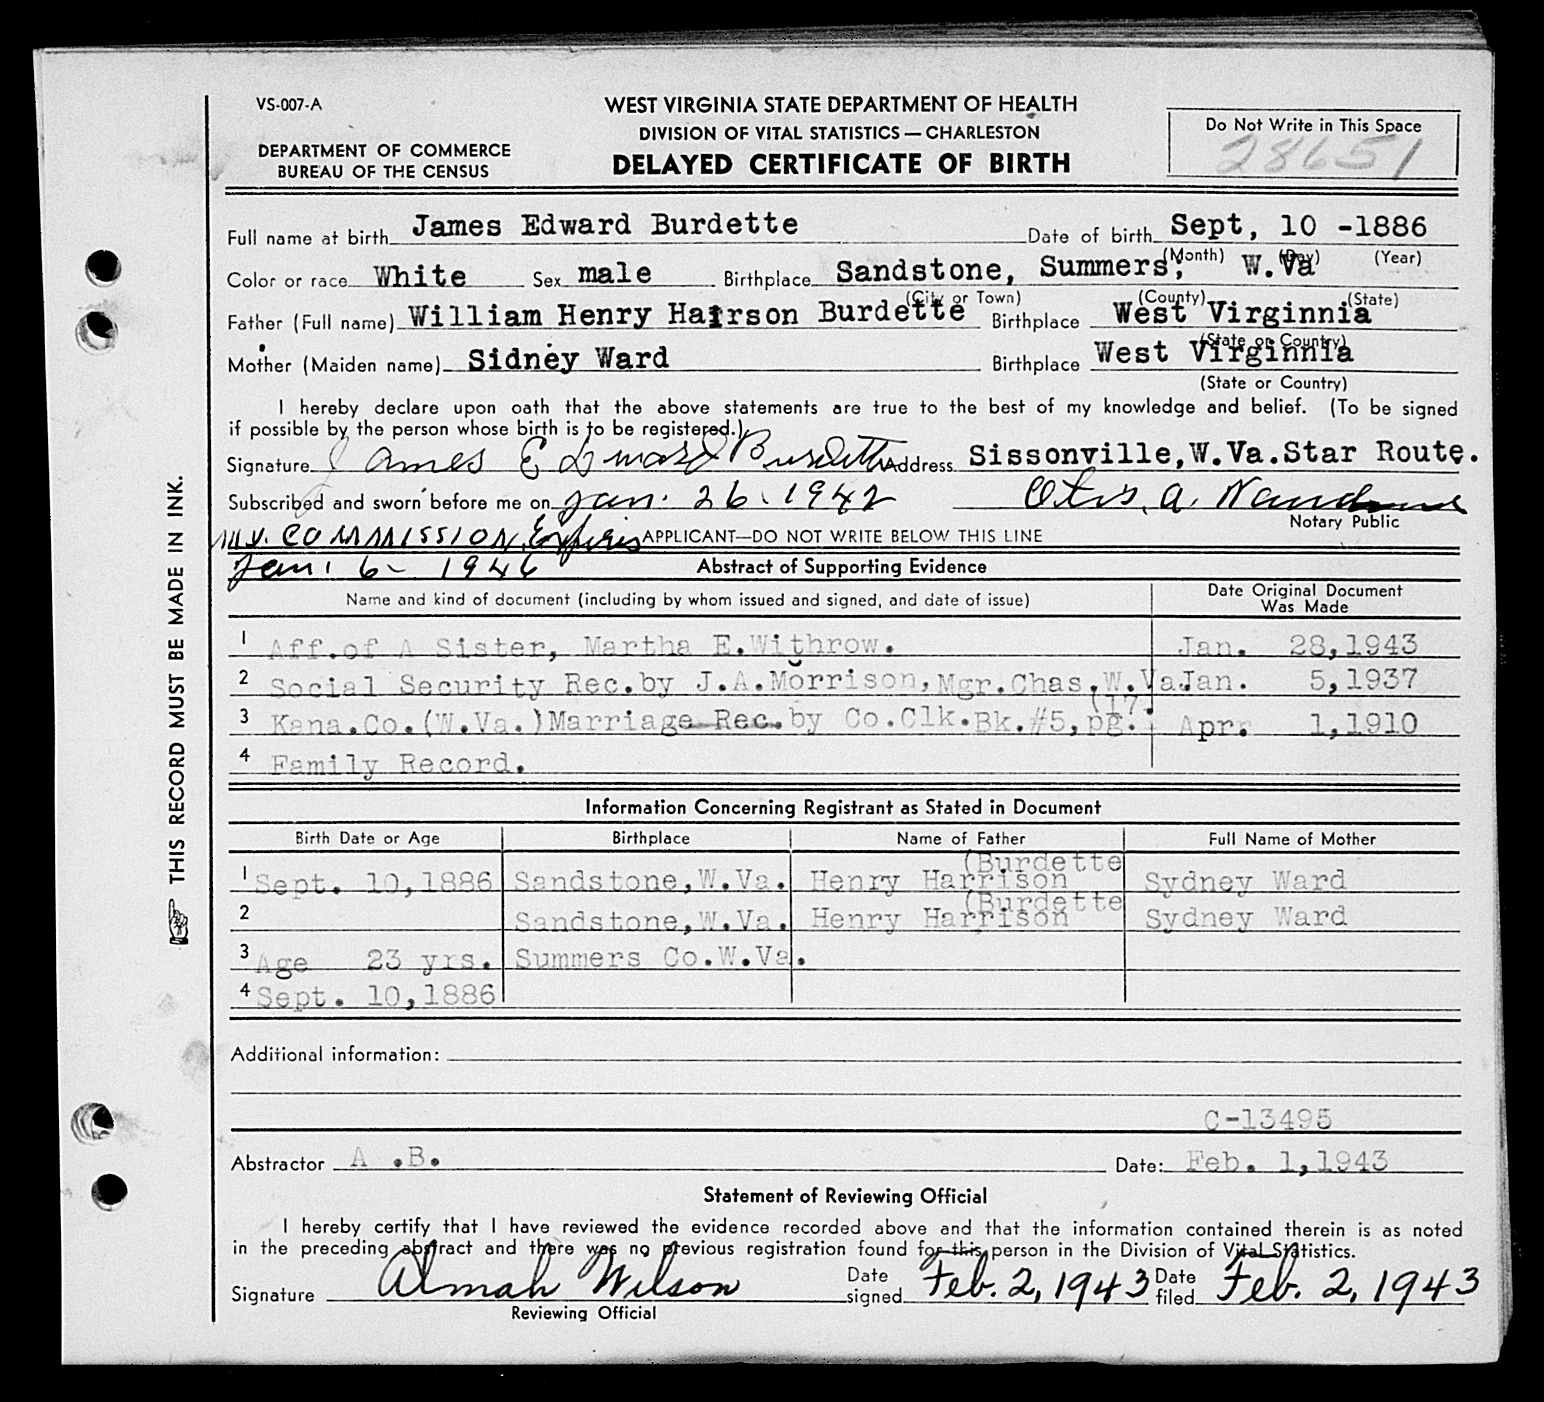 VS-007-A
DEPARTMENT OF COMMERCE
BUREAU OF THE CENSUS
WEST VIRGINIA STATE DEPARTMENT OF HEALTH
DIVISION OF VITAL STATISTICS — CHARLESTON
DELAYED CERTIFICATE OF BIRTH
Do Not Write in This Space
28651
THIS RECORD MUST BE MADE IN INK.
Full name at birth James Edward Burdette Date of birth Sept, 10 -1886
(Month) (Day) (Year)
Color or race White Sex male Birthplace Sandstone, Summers, W.Va
(City or Town) (County) (State)
Father (Full name) William Henry Hairson Burdette Birthplace West Virginnia
(State or Country)
Mother (Maiden name) Sidney Ward Birthplace West Virginnia
(State or Country)
I hereby declare upon oath that the above statements are true to the best of my knowledge and belief. (To be signed
if possible by the person whose birth is to be registered.)
Signature James Edward Burdette Address Sissonville,W.Va.Star Route.
Subscribed and sworn before me on Jan. 26, 1942 Otis. A.
Notary Public
My. COMMISSION Expires APPLICANT—DO NOT WRITE BELOW THIS LINE
Jan. 6- 1946 Abstract of Supporting Evidence
Name and kind of document (including by whom issued and signed, and date of issue) Date Original Document
Was Made
1 Aff.of A Sister, Martha E.Withrow. Jan. 28,1943
2 Social Security Rec.by J.A.Morrison,Mgr.Chas.W.Va. Jan. 5,1937
3 Kana.Co.(W.Va.)Marriage Rec.by Co.Clk.Bk.#5,pg. (17. Apr. 1,1910
4 Family Record.
Information Concerning Registrant as Stated in Document
Birth Date or Age Birthplace Name of Father Full Name of Mother
1 Sept. 10,1886 Sandstone,W.Va. Henry Harrison (Burdette Sydney Ward
2 Sandstone,W.Va. Henry Harrison (Burdette Sydney Ward
3 Age 23 yrs. Summers Co.W.Va.
4 Sept. 10,1886
Additional information:
C-13495
Abstractor A .B. Date: Feb. 1,1943
Statement of Reviewing Official
I hereby certify that I have reviewed the evidence recorded above and that the information contained therein is as noted
in the preceding abstract and there was no previous registration found for this person in the Division of Vital Statistics.
Signature Almah Wilson Date signed Feb. 2, 1943 Date filed Feb. 2, 1943
Reviewing Official